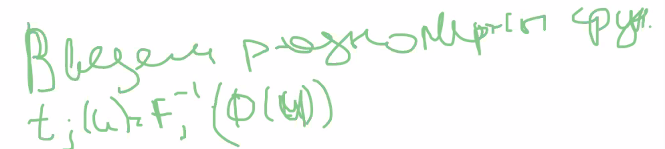 Введем одномерн фун.
t_j(u)=F_j^{-1}(Ф(u))